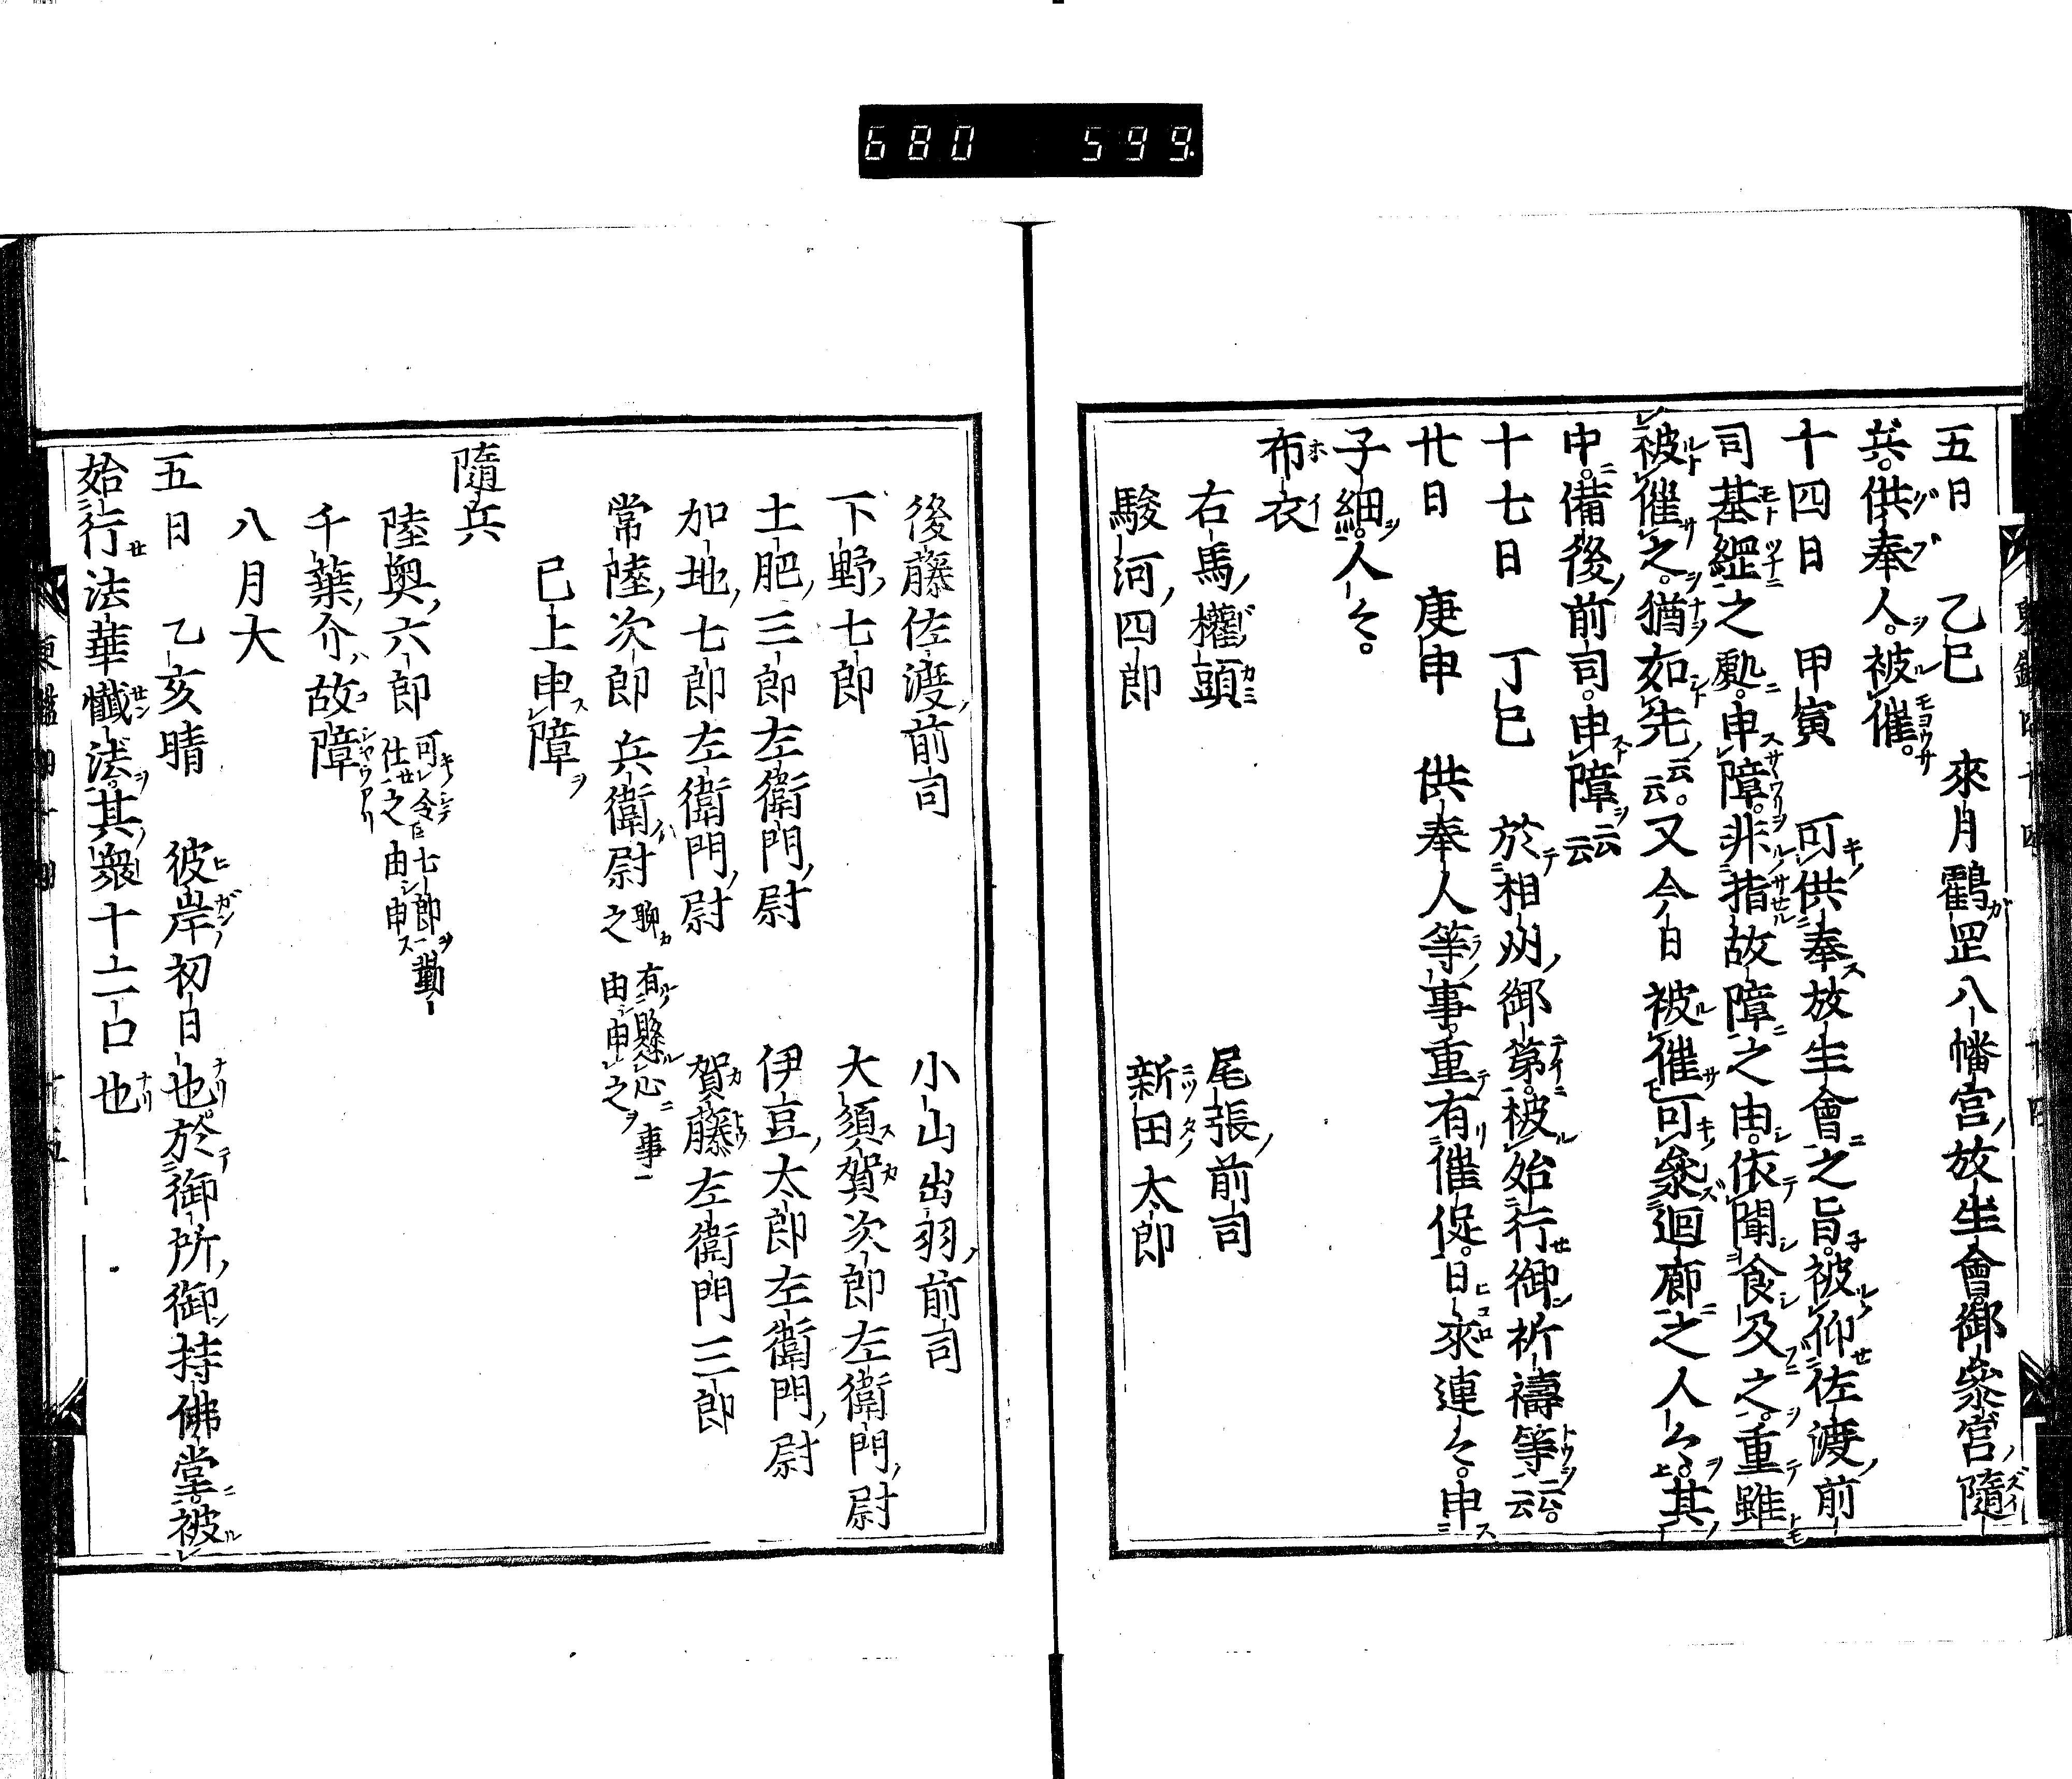 680 599.
五日 乙巳 來月鶴罡八幡宮放生會御參宮隨
兵供奉人被催
十四日 甲寅 可供奉放生會之旨被仰佐渡前
司基綱之處申障非指故障之由依聞食及之重雖
被催之猶如先云云又今日被催可參迴廊之人々其
中備後前司申障云云
十七日 丁巳 於相州御第被始行御祈禱等云云
廿日 庚申 供奉人等事重有催促日來連々申
子細人々
布衣
右馬權頭 尾張前司
駿河四郎 新田太郎
後藤佐渡前司 小山出羽前司
下野七郎 大須賀次郎左衛門尉
土肥三郎左衛門尉 伊豆太郎左衛門尉
加地七郎左衛門尉 賀藤左衛門三郎
常陸次郎兵衛尉 聊有縣心事之由申之
已上申障
隨兵
陸奥六郎 可令召七郎勤仕之由申
千葉介故障
八月大
五日 乙亥晴 彼岸初日也於御所御持佛堂被
始行法華懺法其衆十二口也